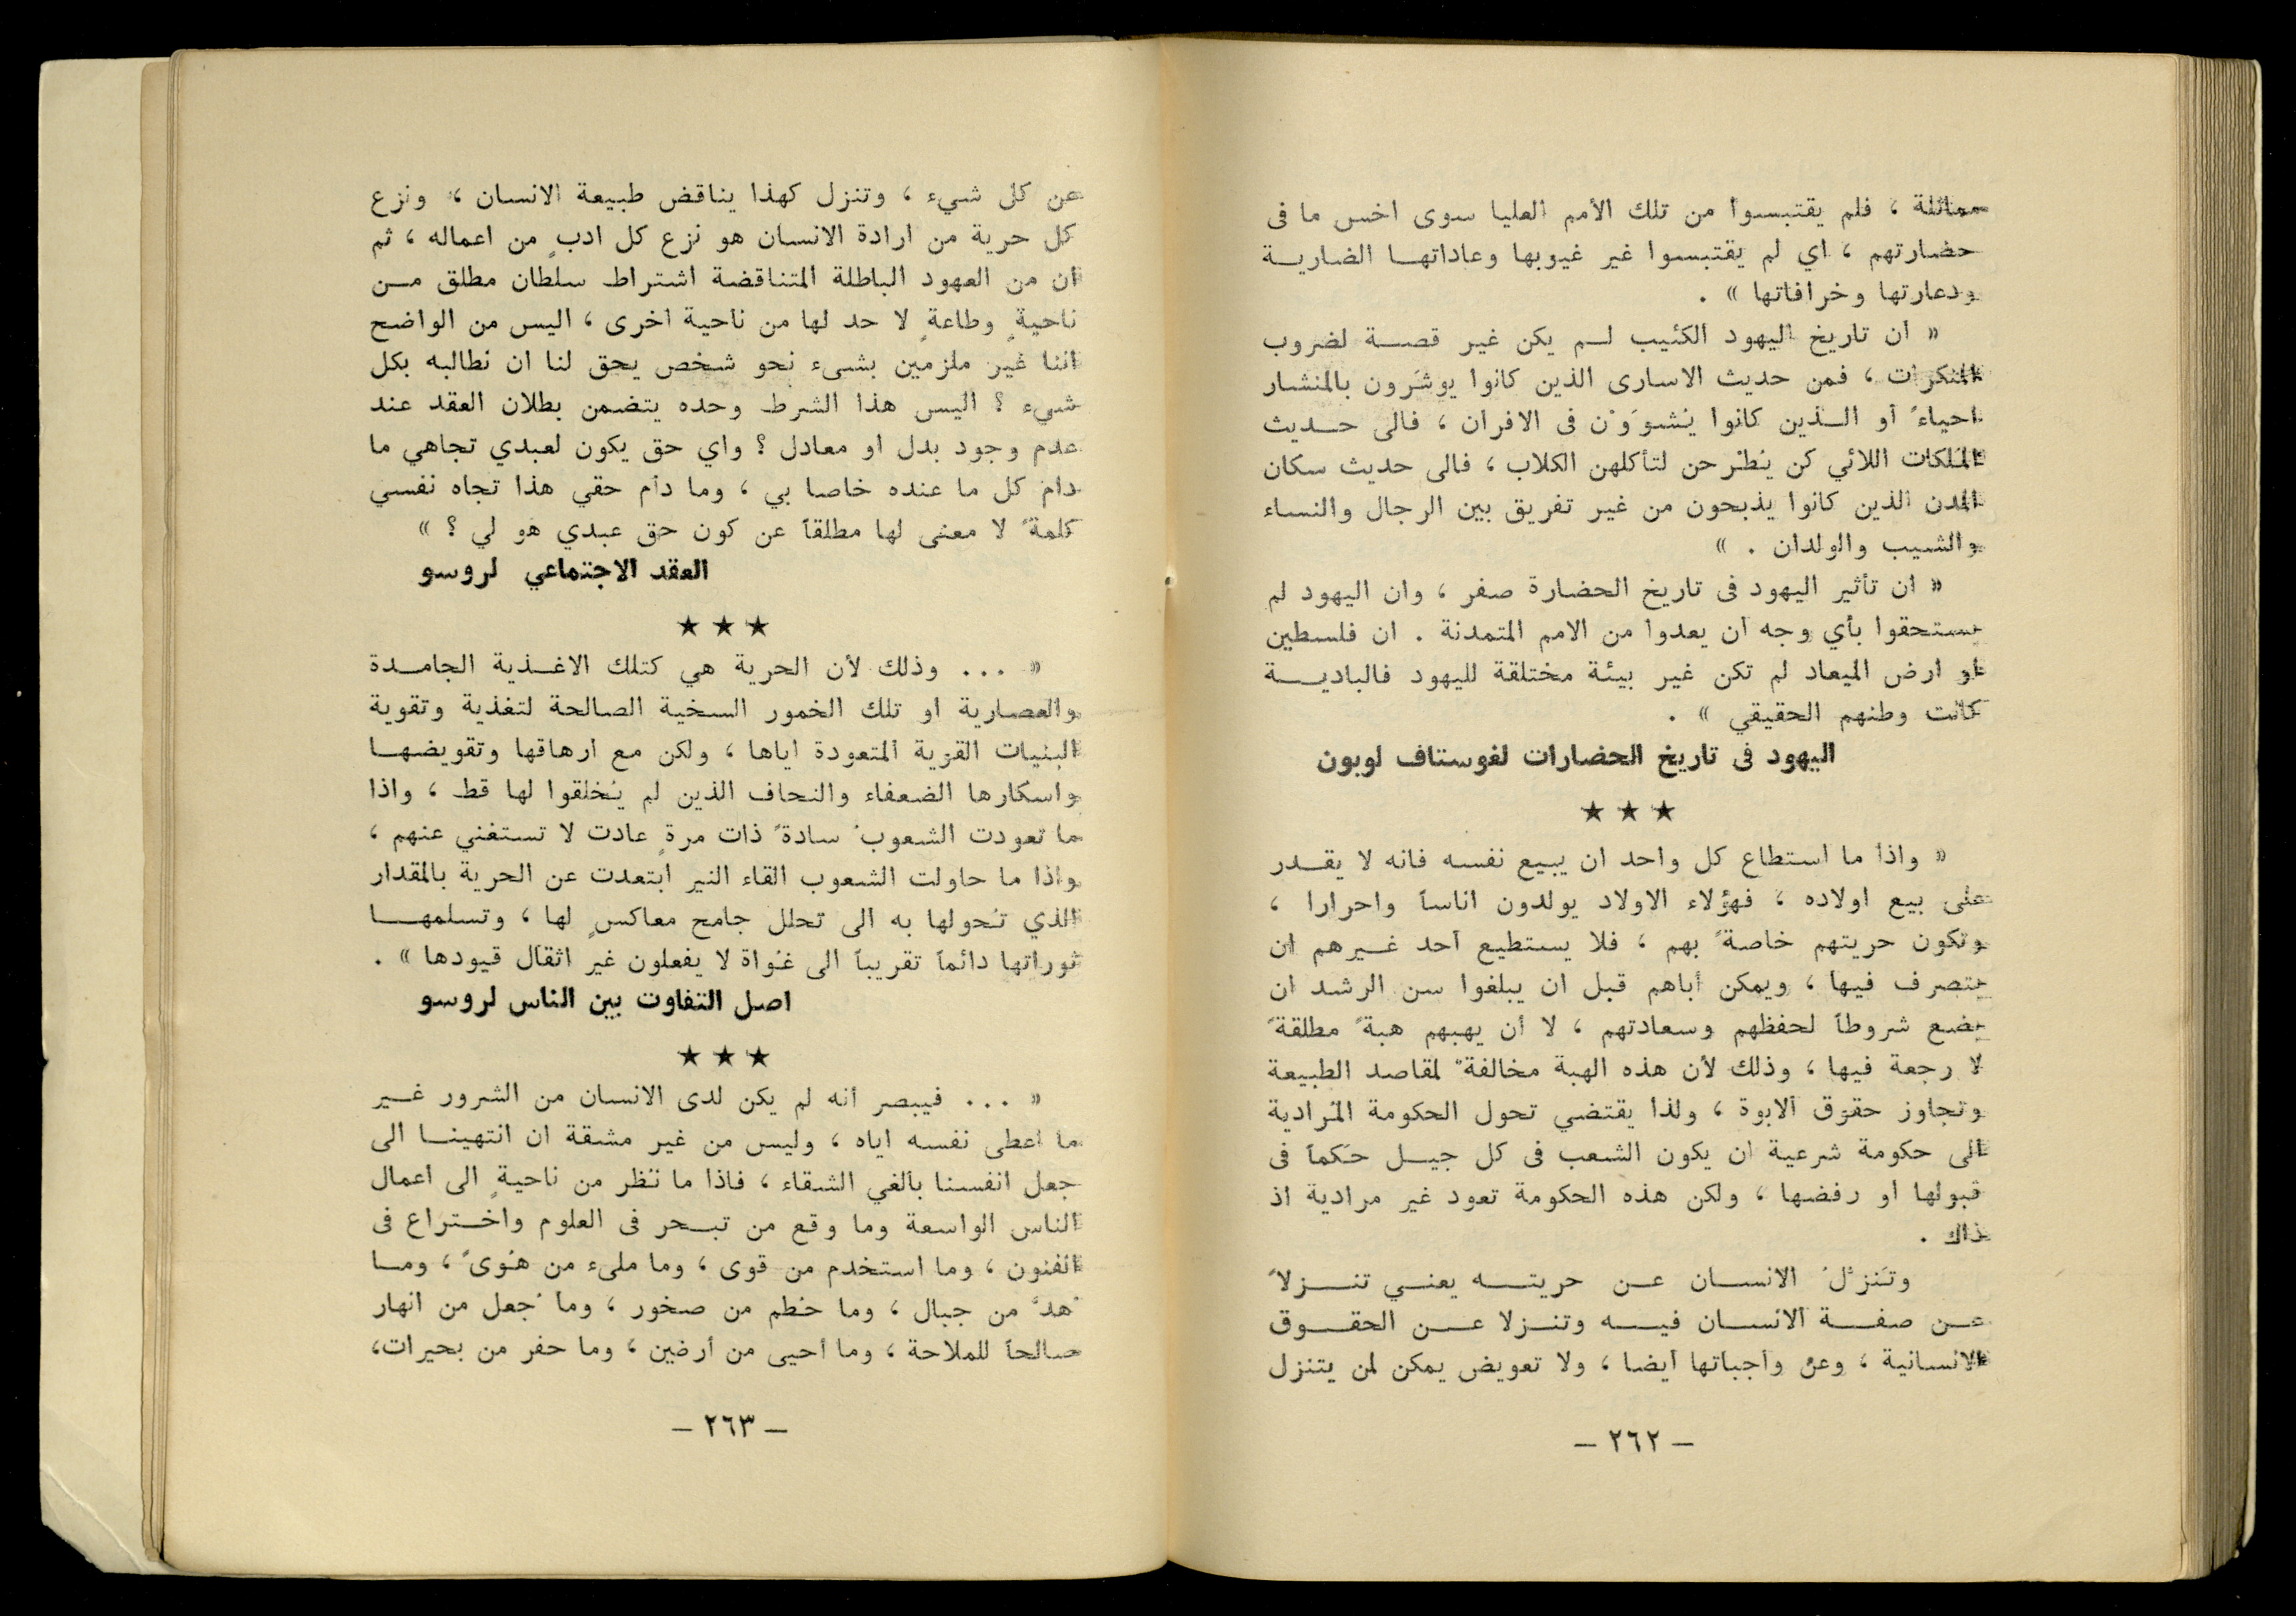 مماثلة ، فلم يقتبسوا من تلك الأمم العليا سوى اخس ما فى
حضارتهم ، اي لم يقتبسوا غير غيوبها وعاداتها الضارية
ودعارتها وخرافاتها » .
« ان تاريخ اليهود الكئيب لم يكن غير قصة لضروب
المنكرات ، فمن حديث الاسارى الذين كانوا يوشَرون بالمنشار
احياءً أو الذين كانوا يُشوَوْن فى الافران ، فالى حديث
الملكات اللائي كن يُطرحن لتأكلهن الكلاب ، فالى حديث سكان
المدن الذين كانوا يذبحون من غير تفريق بين الرجال والنساء
والشيب والولدان . »
« ان تأثير اليهود فى تاريخ الحضارة صفر ، وان اليهود لم
يستحقوا بأي وجه ان يعدوا من الامم المتمدنة . ان فلسطين
او ارض الميعاد لم تكن غير بيئة مختلقة لليهود فالبادية
كانت وطنهم الحقيقي » .
اليهود فى تاريخ الحضارات لغوستاف لوبون
★ ★ ★
« واذا ما استطاع كل واحد ان يبيع نفسه فانه لا يقدر
على بيع اولاده ، فهؤلاء الاولاد يولدون اناساً واحرارا ،
وتكون حريتهم خاصةً بهم ، فلا يستطيع أحد غيرهم ان
يتصرف فيها ، ويمكن أباهم قبل ان يبلغوا سن الرشد ان
يضع شروطاً لحفظهم وسعادتهم ، لا أن يهبهم هبةً مطلقةً
لا رجعة فيها ، وذلك لأن هذه الهبة مخالفةٌ لمقاصد الطبيعة
وتجاوز حقوق الابوة ، ولذا يقتضي تحول الحكومة المُرادية
الى حكومة شرعية ان يكون الشعب فى كل جيل حَكماً فى
قبولها او رفضها ، ولكن هذه الحكومة تعود غير مرادية اذ
ذاك .
وتَنزّلُ الانسان عن حريته يعني تنزلاً
عن صفة الانسان فيه وتنزلا عن الحقوق
الانسانية ، وعن واجباتها أيضا ، ولا تعويض يمكن لمن يتنزل
– ٢٦٢ –
عن كل شيء ، وتنزل كهذا يناقض طبيعة الانسان ، ونزع
كل حرية من ارادة الانسان هو نزع كل ادبٍ من اعماله ، ثم
ان من العهود الباطلة المتناقضة اشتراط سلطان مطلق من
ناحيةٍ وطاعةٍ لا حد لها من ناحية اخرى ، اليس من الواضح
اننا غير ملزمين بشىء نحو شخص يحق لنا ان نطالبه بكل
شيء ؟ اليس هذا الشرط وحده يتضمن بطلان العقد عند
عدم وجود بدل او معادل ؟ واي حق يكون لعبدي تجاهي ما
دام كل ما عنده خاصا بي ، وما دام حقي هذا تجاه نفسي
كلمةً لا معنى لها مطلقاً عن كون حق عبدي هو لي ؟ »
العقد الاجتماعي لروسو
★ ★ ★
« ... وذلك لأن الحرية هي كتلك الاغذية الجامدة
والعصارية او تلك الخمور السخية الصالحة لتغذية وتقوية
البنيات القوية المتعودة اياها ، ولكن مع ارهاقها وتقويضها
واسكارها الضعفاء والنحاف الذين لم يُخلقوا لها قط ، واذا
ما تعودت الشعوبُ سادةً ذات مرةٍ عادت لا تستغني عنهم ،
واذا ما حاولت الشعوب القاء النير ابتعدت عن الحرية بالمقدار
الذي تُحولها به الى تحلل جامح معاكسٍ لها ، وتسلمها
ثوراتها دائماً تقريباً الى غُواة لا يفعلون غير اثقال قيودها » .
اصل التفاوت بين الناس لروسو
★ ★ ★
« ... فيبصر أنه لم يكن لدى الانسان من الشرور غير
ما اعطى نفسه اياه ، وليس من غير مشقة ان انتهينا الى
جعل انفسنا بالغي الشقاء ، فاذا ما نُظر من ناحيةٍ الى اعمال
الناس الواسعة وما وقع من تبحر فى العلوم واختراع فى
الفنون ، وما استخدم من قوى ، وما ملىء من هُوىً ، وما
هُدَّ من جبال ، وما حُطم من صخور ، وما جُعل من انهار
صالحاً للملاحة ، وما أحيى من أرضين ، وما حفر من بحيرات،
– ٢٦٣ –